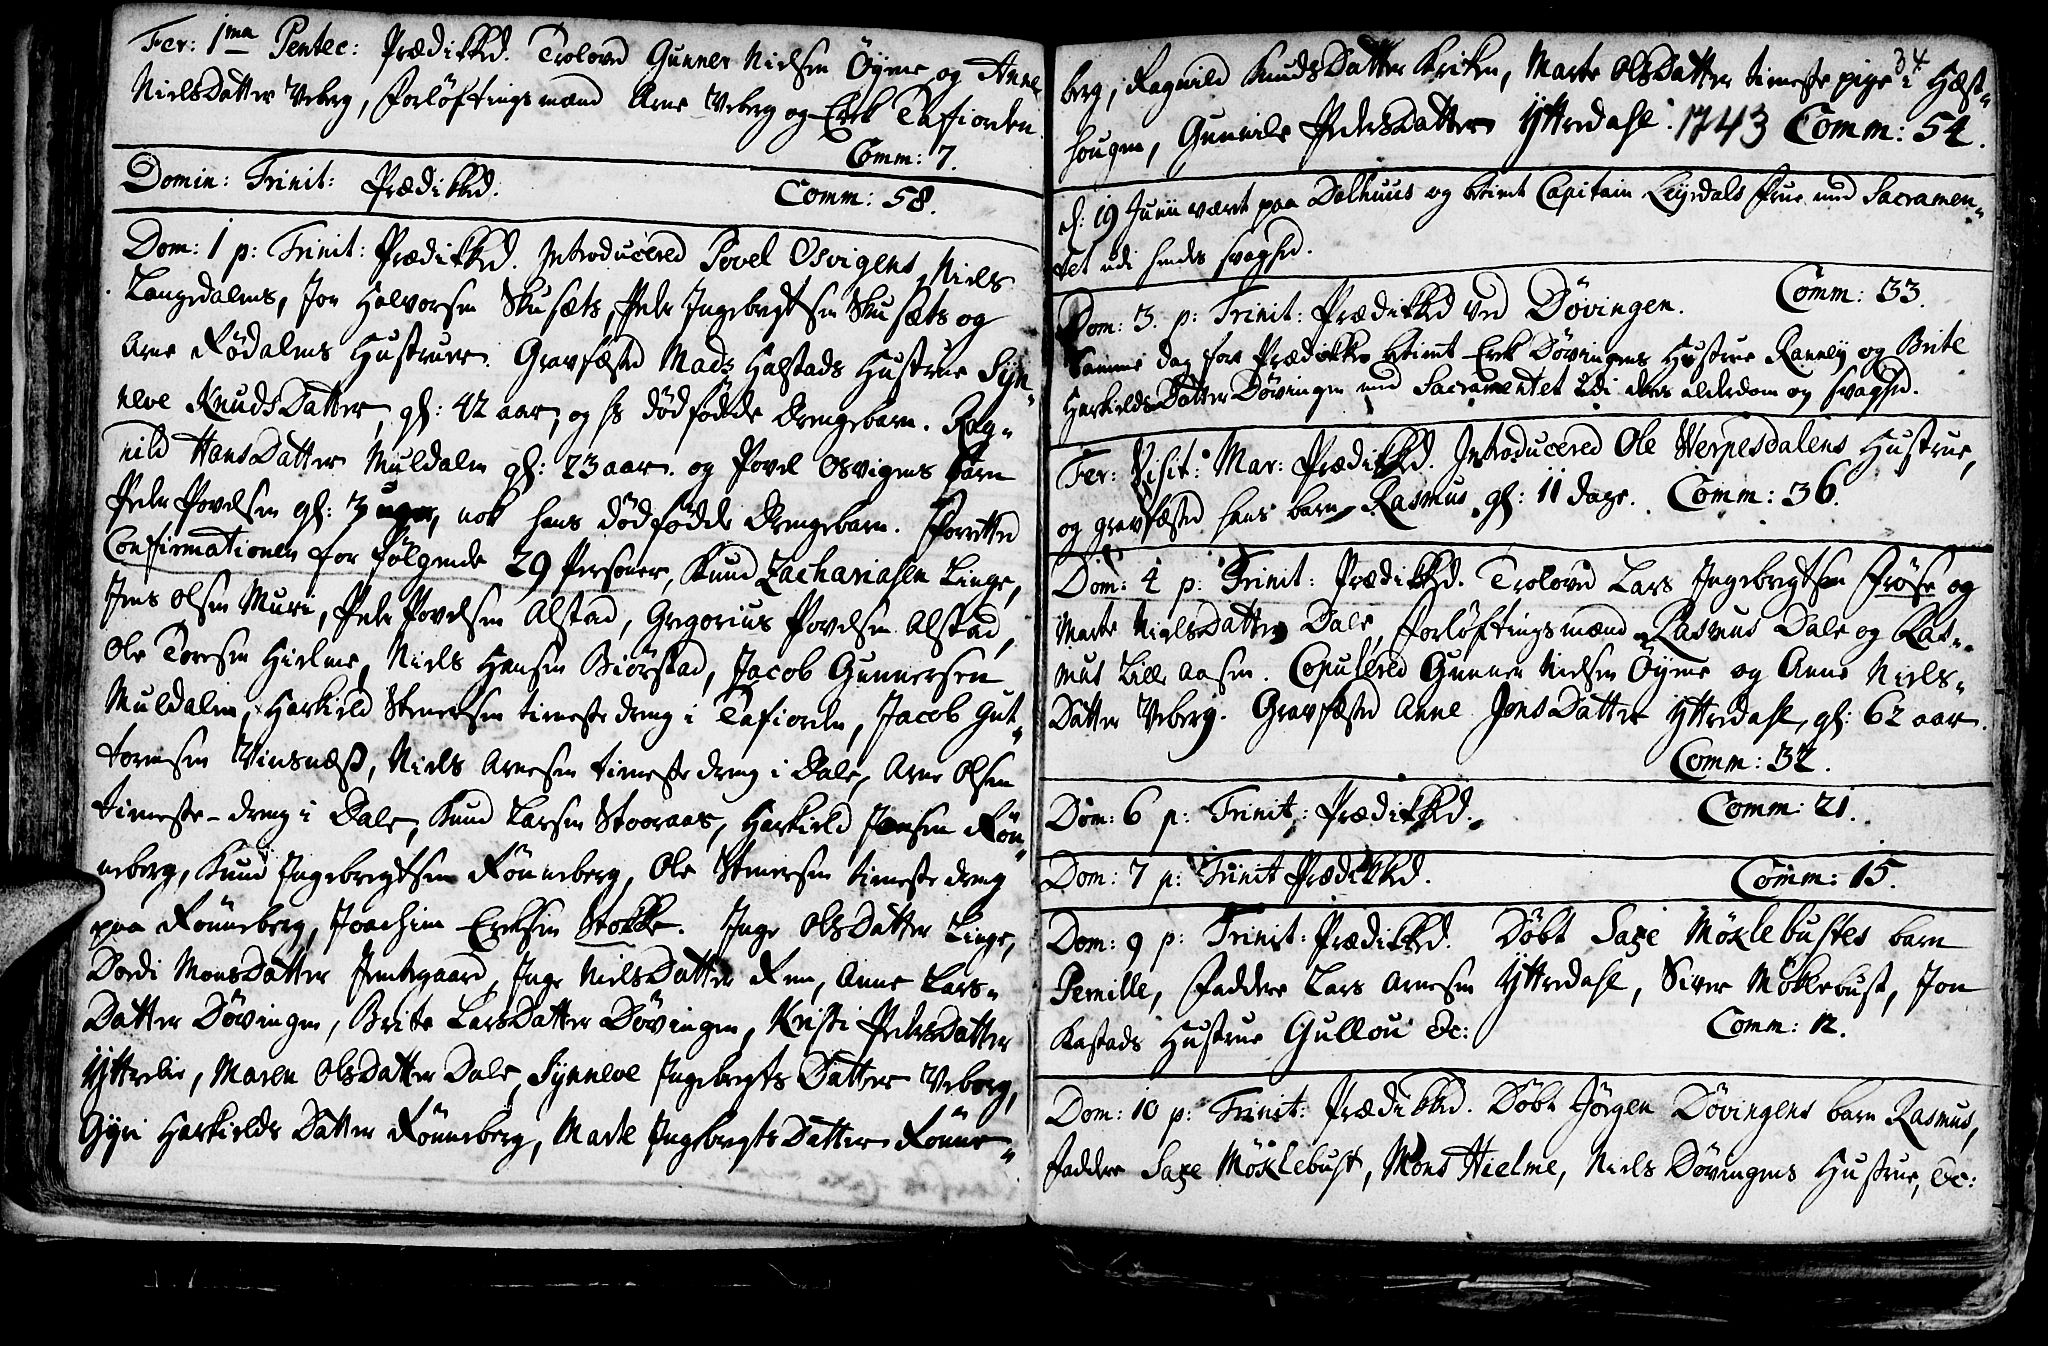 Fer: 1ma Pentec: Prædikked. Trolovd Gunner Nielsen Öyme og Anne
NielsDatter Veberg, forlöftingsmænd Arne Veberg og Erik Tafiorden.
Comm: 7.
Domin: Trinit: Prædikked. Comm: 58.
Dom: 1 p: Trinit: Prædikked. Introducered Povel Osvigens, Niels
Langdalens, Jon Halvorsen Skusæts, Peder Ingebregtsen Skusæts og
Arne Rödalens Hustruer. Gravfæsted Mads Halstads Hustrue Syn-
neve KnudsDatter gl: 42 aar, og hs dödfödde drengebarn. Rag-
nild HansDatter Muldalen gl: 23 aar. og Povel Osvigens barn
Peder Povelsen gl: 3 uger, nok hans dödfödde drengebarn. Forretted
Confirmationen for fölgende 29 Personer, Knud Zachariasen Linge,
Jens Olsen Muri, Peder Povelsen Alstad, Gregorius Povelsen Alstad,
Ole Toresen Hielme, Niels Hansen Biörstad, Jacob Gunnersen
Muldalen, Harkield Stenersen tieneste dreng i Tafiorden, Jacob Gut-
tormsen Vinsnæs, Niels Arnesen tieneste dreng i Dale, Arne Olsen
tieneste-dreng i Dale, Knud Larsen Stooraas, Harkield Jonsen Rön-
neberg, Knud Ingebregtsen Rönneberg, Ole Stenersen tieneste dreng
paa Rönneberg, Joachim Ericksen Stokke. Inge OlsDatter Linge,
Dordi MonsDatter Jemtegaard, Inge NielsDatter Rem, Anne Lars-
Datter Dövingen, Brite LarsDatter Dövingen, Kristi PedersDatter
Ytterlie, Maren OlsDatter Dale, Synneve IngebregtsDatter Veberg,
Gyri HarkieldsDatter Rönneberg, Marte IngebregtsDatter Rönne-
34
berg, Ragnild KnudsDatter Kriken, Marte OlsDatter tieneste pige i Hæst-
hougen, Gunnile PedersDatter Yttredahl. 1743 Comm: 54.
d: 19 Junii været paa Dalhuus og betient Capitain Leyrdals Frue med Sacramen-
tet udi hendes svaghed.
Dom: 3. p: Trinit: Prædikked ved Dövingen. Comm: 33.
Samme dag for Prædikken betient Erik Dövingens Hustrue Ranney og Brite
HarkieldsDatter Dövingen med Sacramentet udi deres alderdom og svaghed.
Fer: Visit: Mar: Prædikked. Introducered Ole Herpesdalens Hustrue,
og gravfæsted hans barn Rasmus gl: 11 dage. Comm: 36.
Dom: 4 p: Trinit: Prædikked. Trolovd Lars Ingebregtsen Fröse og
Marte NielsDatter Dale, forlöftingsmænd Rasmus Dale og Ras-
mus Lille Aasen. Copulered Gunner Nielsen Öyme og Anne Niels-
Datter Veberg. Gravfæsted Anne JonsDatter Yttredahl, gl: 62 aar.
Comm: 32.
Dom: 6 p: Trinit: Prædikked. Comm: 21.
Dom: 7 p: Trinit Prædikked. Comm: 15.
Dom: 9 p: Trinit: Prædikked. Döbt Saxe Möklebustes barn
Pernille, Faddere Lars Arnesen Yttredahl, Siver Möklebust, Jon
Kastads Hustrue Gullou &c: Comm: 12.
Dom: 10 p: Trinit: Prædikked. Döbt Jörgen Dövingens barn Rasmus,
Faddere Saxe Möklebust, Mons Hielme, Niels Dövingens Hustrue, &c: